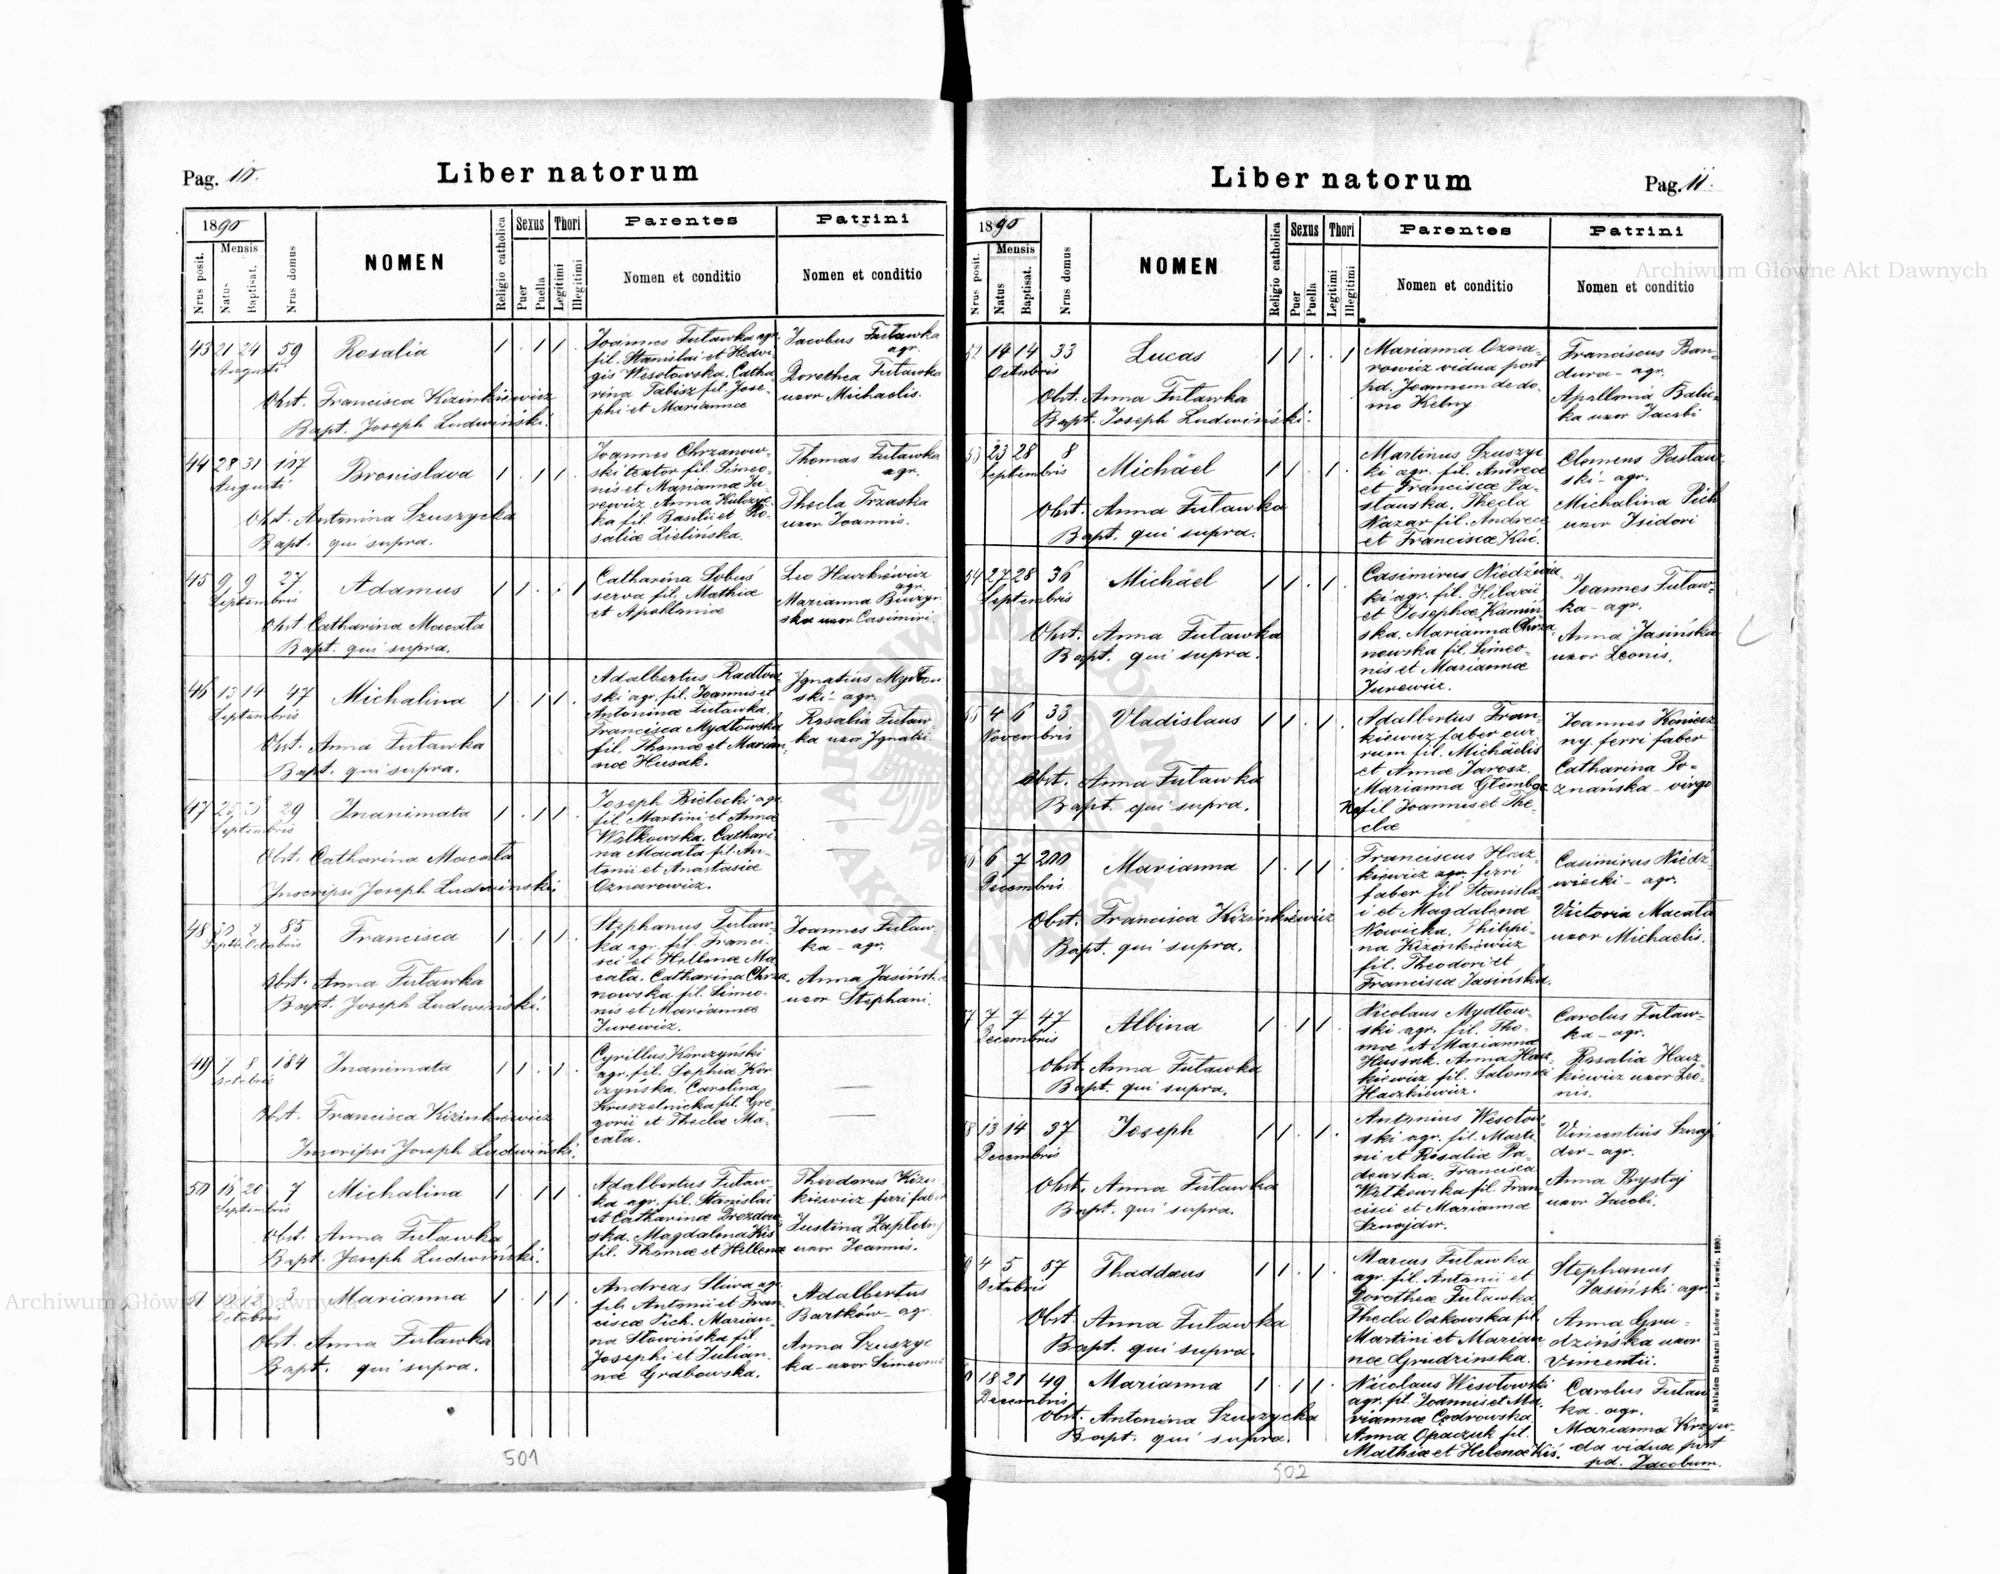 Pag. 10.
Liber natorum
1890
Mensis
Nrus posit.
Natus
Baptisat.
Nrus domus
NOMEN
Religio catholica
Sexus
Puer
Puella
Thori
Legitimi
Illegitimi
Parentes
Nomen et conditio
Patrini
Nomen et conditio
43 21 24 59 Rosalia
Augusti
Obst. Francisca Kizinkiewicz
Bapt. Joseph Ludwiński.
Joannes Futawka agr.
fil. Stanislai et Hedvi-
gis Wesołowska. Catha-
rina Tabisz fil. Jose-
phi et Mariannæ
Jacobus Futawka
agr.
Dorothea Futawka
uxor Michaelis.
44 28 31 107 Bronislava
Augusti
Obst. Antonina Szuszycka
Bapt. qui supra.
Joannes Chrzanow-
ski textor fil. Simeo-
nis et Mariannæ Ju-
rewicz. Anna Kulczyc-
ka fil. Basilii et Ro-
saliæ Zielińska.
Thomas Futawka
agr.
Thecla Trzaska
uxor Joannis.
45 9 9 27 Adamus
Septembris
Obst. Catharina Macata
Bapt. qui supra.
Catharina Sobuś
serva fil. Mathiæ
et Apolloniæ
Leo Haczkiewicz
agr.
Marianna
uxor Casimiri
46 13 14 47 Michalina
Septembris
Obst. Anna Futawka
Bapt. qui supra.
Adalbertus Radłow-
ski agr. fil. Joannis et
Antoninæ Futawka.
Francisca Mydłowska
fil. Thomæ et Marian-
næ Husak.
Ignatius Mydłow
ski - agr.
Rosalia Futaw
ka uxor Ignatii
47 29 Inanimata
Septembris
Obst. Catharina Macata
Inscripsi Joseph Ludwiński.
Joseph Bielecki agr.
fil. Martini et Annæ
Witkowska. Cathari-
na Macata fil. An-
tonii et Anastasiæ
Oznarowicz.
48 2 85 Francisca
Septr. Octobris
Obst. Anna Futawka
Bapt. Joseph Ludwiński.
Stephanus Futaw-
ka agr. fil. Franci-
sci et Hellenæ Ma-
cata. Catharina Chrza-
nowska fil. Simeo-
nis et Mariannæ
Jurewicz.
Joannes Futaw-
ka - agr.
Anna Jasińska
uxor Stephani.
49 7 8 184 Inanimata
Octobris
Obst. Francisca Kizinkiewicz
Inscripsi Joseph Ludwiński.
Cyrillus Korczyński
agr. fil. Sophiæ Kor
czyńska. Carolina
Kruszelnicka fil. Gre-
gorii et Theclæ Ma-
cata.
50 18 20 7 Michalina
Septembris
Obst. Anna Futawka
Bapt. Joseph Ludwiński.
Adalbertus Futaw-
ka agr. fil. Stanislai
et Catharinæ Drozdow-
ska. Magdalena Kiś
fil. Thomæ et Hellenæ
Theodorus Kizin
kiewicz ferri faber
Justina
uxor Joannis.
51 12 12 3 Marianna
Octobris
Obst. Anna Futawka
Bapt. qui supra.
Andreas Śliwa agr.
fil. Antonii et Fran-
ciscæ Pich. Marian-
na Słowińska fil.
Josephi et Julian-
næ Grabowska.
Adalbertus
Bartków - agr.
Anna Szuszyc
ka - uxor Simeonis
501
Liber natorum
Pag. 11.
1890
Mensis
Nrus posit.
Natus
Baptisat.
Nrus domus
NOMEN
Religio catholica
Sexus
Puer
Puella
Thori
Legitimi
Illegitimi
Parentes
Nomen et conditio
Patrini
Nomen et conditio
52 14 14 33 Lucas
Octobris
Obst. Anna Futawka
Bapt. Joseph Ludwiński.
Marianna Ozna-
rowicz vidua post
pd. Joannem de do-
mo Kelny.
Franciscus Ban-
dura - agr.
Apollonia Balic-
ka uxor Jacobi
53 23 28 8 Michäel
Septembris
Obst. Anna Futawka
Bapt. qui supra.
Martinus Szuszyc
ki agr. fil. Andreæ
et Franciscæ Pa-
stawska. Thecla
Nazar fil. Andreæ
et Franciscæ Kuć.
Clemens Pastaw
ski - agr.
Michalina Pich
uxor Isidori
54 27 28 36 Michäel
Septembris
Obst. Anna Futawka
Bapt. qui supra.
Casimirus Niedźwiec
ki agr. fil. Hilarii
et Josephæ Kamiń
ska. Marianna Chrza-
nowska fil. Simeo-
nis et Mariannæ
Jurewicz.
Joannes Futaw-
ka - agr.
Anna Jasińska
uxor Leonis.
55 4 6 33 Vladislaus
Novembris
Obst. Anna Futawka
Bapt. qui supra.
Adalbertus Fran-
kiewicz faber cur
rum fil. Michäelis
et Annæ Jarosz.
Marianna
fil Joannis et The-
clæ
Joannes Koniecz
ny ferri faber
Catharina Po-
znańska - virgo
56 6 7 200 Marianna
Decembris
Obst. Francisca Kizinkiewicz
Bapt. qui supra.
Franciscus Hacz-
kiewicz agr. ferri
faber fil Stanisla-
i et Magdalenæ
Nowicka. Philippi-
na Kizinkiewicz
fil. Theodori et
Francisca Jasińska.
Casimirus Niedź-
wiecki - agr.
Victoria Macata
uxor Michaelis.
57 7 7 47 Albina
Decembris
Obst. Anna Futawka
Bapt. qui supra.
Nicolaus Mydłow-
ski agr. fil. Tho-
mæ et Mariannæ
Hussak. Anna Hacz
kiewicz fil. Salomeæ
Haczkiewicz.
Carolus Futaw-
ka - agr.
Rosalia Hacz-
kiewicz uxor Leo-
nis.
58 13 14 37 Joseph
Decembris
Obst. Anna Futawka
Bapt. qui supra.
Antonius Wesołow
ski agr. fil. Marti
ni et Rosaliæ Pa-
deuszka. Francisca
Witkowska fil. Fran
cisci et Mariannæ
Sznajder.
Vincentius Sznaj
der - agr.
Anna Brystaj
uxor Jacobi.
59 4 5 57 Thaddæus
Octobris
Obst. Anna Futawka
Bapt. qui supra.
Marcus Futawka
agr. fil. Antonii et
Dorotheæ Futawka
Thecla fil.
Martini et Marian
næ Grudzinska.
Stephanus
Jasiński agr.
Anna Gru-
dzińska uxor
Vincentii.
60 18 21 49 Marianna
Decembris
Obst. Antonina Szuszycka
Bapt. qui supra.
Nicolaus Wesołowski
agr. fil. Joannis et Ma
riannæ Codrowska
Anna Opaczuk fil.
Mathiæ et Helenæ Kiś.
Carolus Futaw
ka - agr.
Marianna Krzyw-
da vidua post
pd. Jacobum.
Nakładem Drukarni Ludowej we Lwowie. 1890.
502
Archiwum Główne Akt Dawnych
Archiwum Główne Akt Dawnych